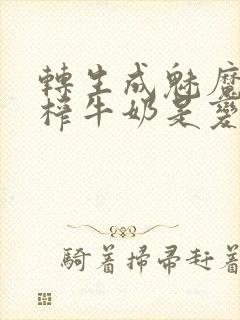 轉生成魅魔
榨牛奶是變
騎著掃帚赶著